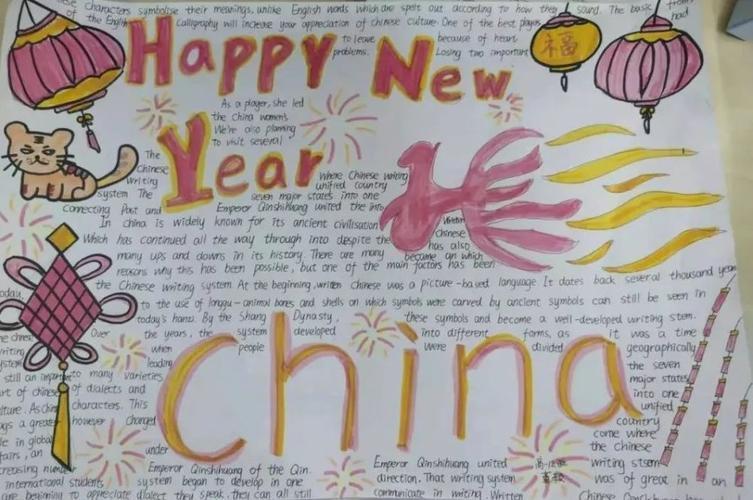 Characters symbolise their meanings, unlike English words which are spelt out according to how they sound. The basic from
of the English Calligraphy will increase your appreciation of Chinese culture. One of the best players had
to leave because of heart
problems. Losing two important
福
Happy New
Year
As a player, she led
the China women's
We're also planning
to visit several
The
Chinese
writing
system The
Where Chinese writing
unified country
seven major states into one
connecting Past and Emperor Qinshihuang united the into
In china is widely known for its ancient civilisation
Written
Chinese
has also
become an which
Which has continued all the way through into despite the
many ups and downs in its history. There are many
reasons why this has been possible, but one of the main factors has been
the Chinese writing system At the beginning, written Chinese was a picture-based language It dates back several thousand years
today, to the use of longgu-animal bones and shells on which symbols were carved by ancient symbols can still be seen in
today's hanzi. By the Shang Dynasty, these symbols and become a well-developed writing stem.
Over the years, the system developed into different forms, as it was a time
when people were divided geographically
leading
the seven
major states
into one
unified
country
come where
the Chinese
writing
was of great in an
still an important to many varieties
of dialects and
characters. This
however changed
under
China
Emperor Qinshihuang of the Qin.
system began to develop in one
dialect they speak, they can all still
Emperor Qinshihuang united
direction. That writing system
communicate in writing. Written
art of chinese
culture. As China
a greater
in global
affairs, an
increasing number
international students
are beginning to appreciate